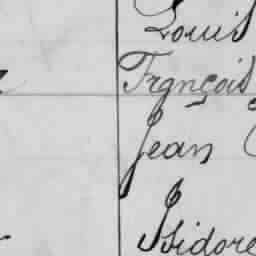 Louis
François
Jean
Isidore